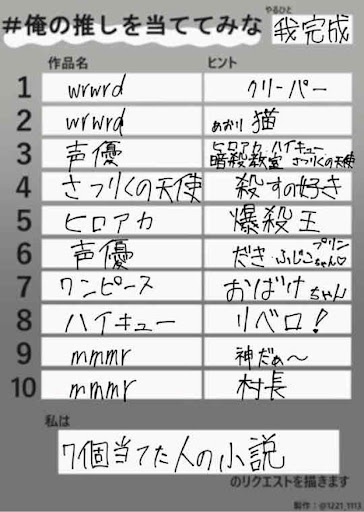 #俺の推しを当ててみな
やるひと
我完成
作品名 ヒント
1 wrwrd クリーパー
2 wrwrd あおり猫
3 声優 ヒロアカ ハイキュー 暗殺教室 さつりくの天使
4 さつりくの天使 殺すの好き
5 ヒロアカ 爆殺王
6 声優 だき ふじこちゃん♡ プリン
7 ワンピース おばけちゃん
8 ハイキュー リベロ!
9 mmmr 神だぁ〜
10 mmmr 村長
私は
7個当てた人の小説
のリクエストを描きます
製作:@1221_1113